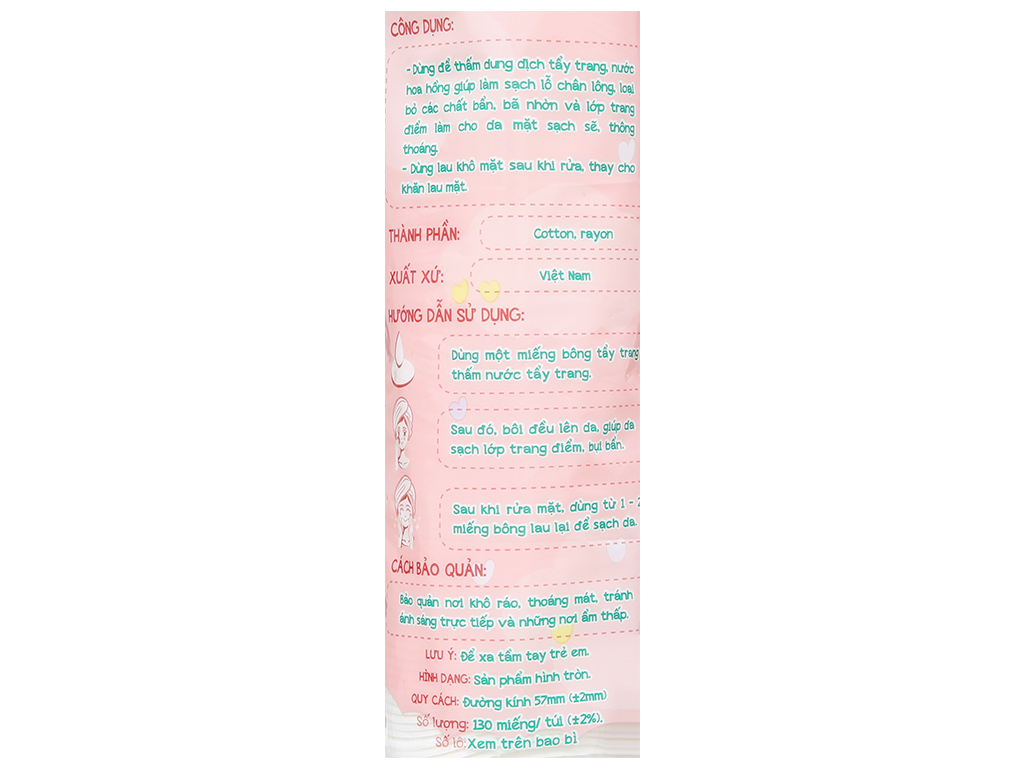 CÔNG DỤNG:
- Dùng để thấm dung dịch tẩy trang, nước
hoa hồng giúp làm sạch lỗ chân lông, loại
bỏ các chất bẩn, bã nhờn và lớp trang
điểm làm cho da mặt sạch sẽ, thông
thoáng.
- Dùng lau khô mặt sau khi rửa, thay cho
khăn lau mặt.
THÀNH PHẦN: Cotton, rayon
XUẤT XỨ: Việt Nam
HƯỚNG DẪN SỬ DỤNG:
Dùng một miếng bông tẩy trang
thấm nước tẩy trang.
Sau đó, bôi đều lên da, giúp da
sạch lớp trang điểm, bụi bẩn.
Sau khi rửa mặt, dùng từ 1 - 2
miếng bông lau lại để sạch da.
CÁCH BẢO QUẢN:
Bảo quản nơi khô ráo, thoáng mát, tránh
ánh sáng trực tiếp và những nơi ẩm thấp.
LƯU Ý: Để xa tầm tay trẻ em.
HÌNH DẠNG: Sản phẩm hình tròn.
QUY CÁCH: Đường kính 57mm (±2mm)
Số lượng: 130 miếng/ túi (±2%).
Số lô: Xem trên bao bì